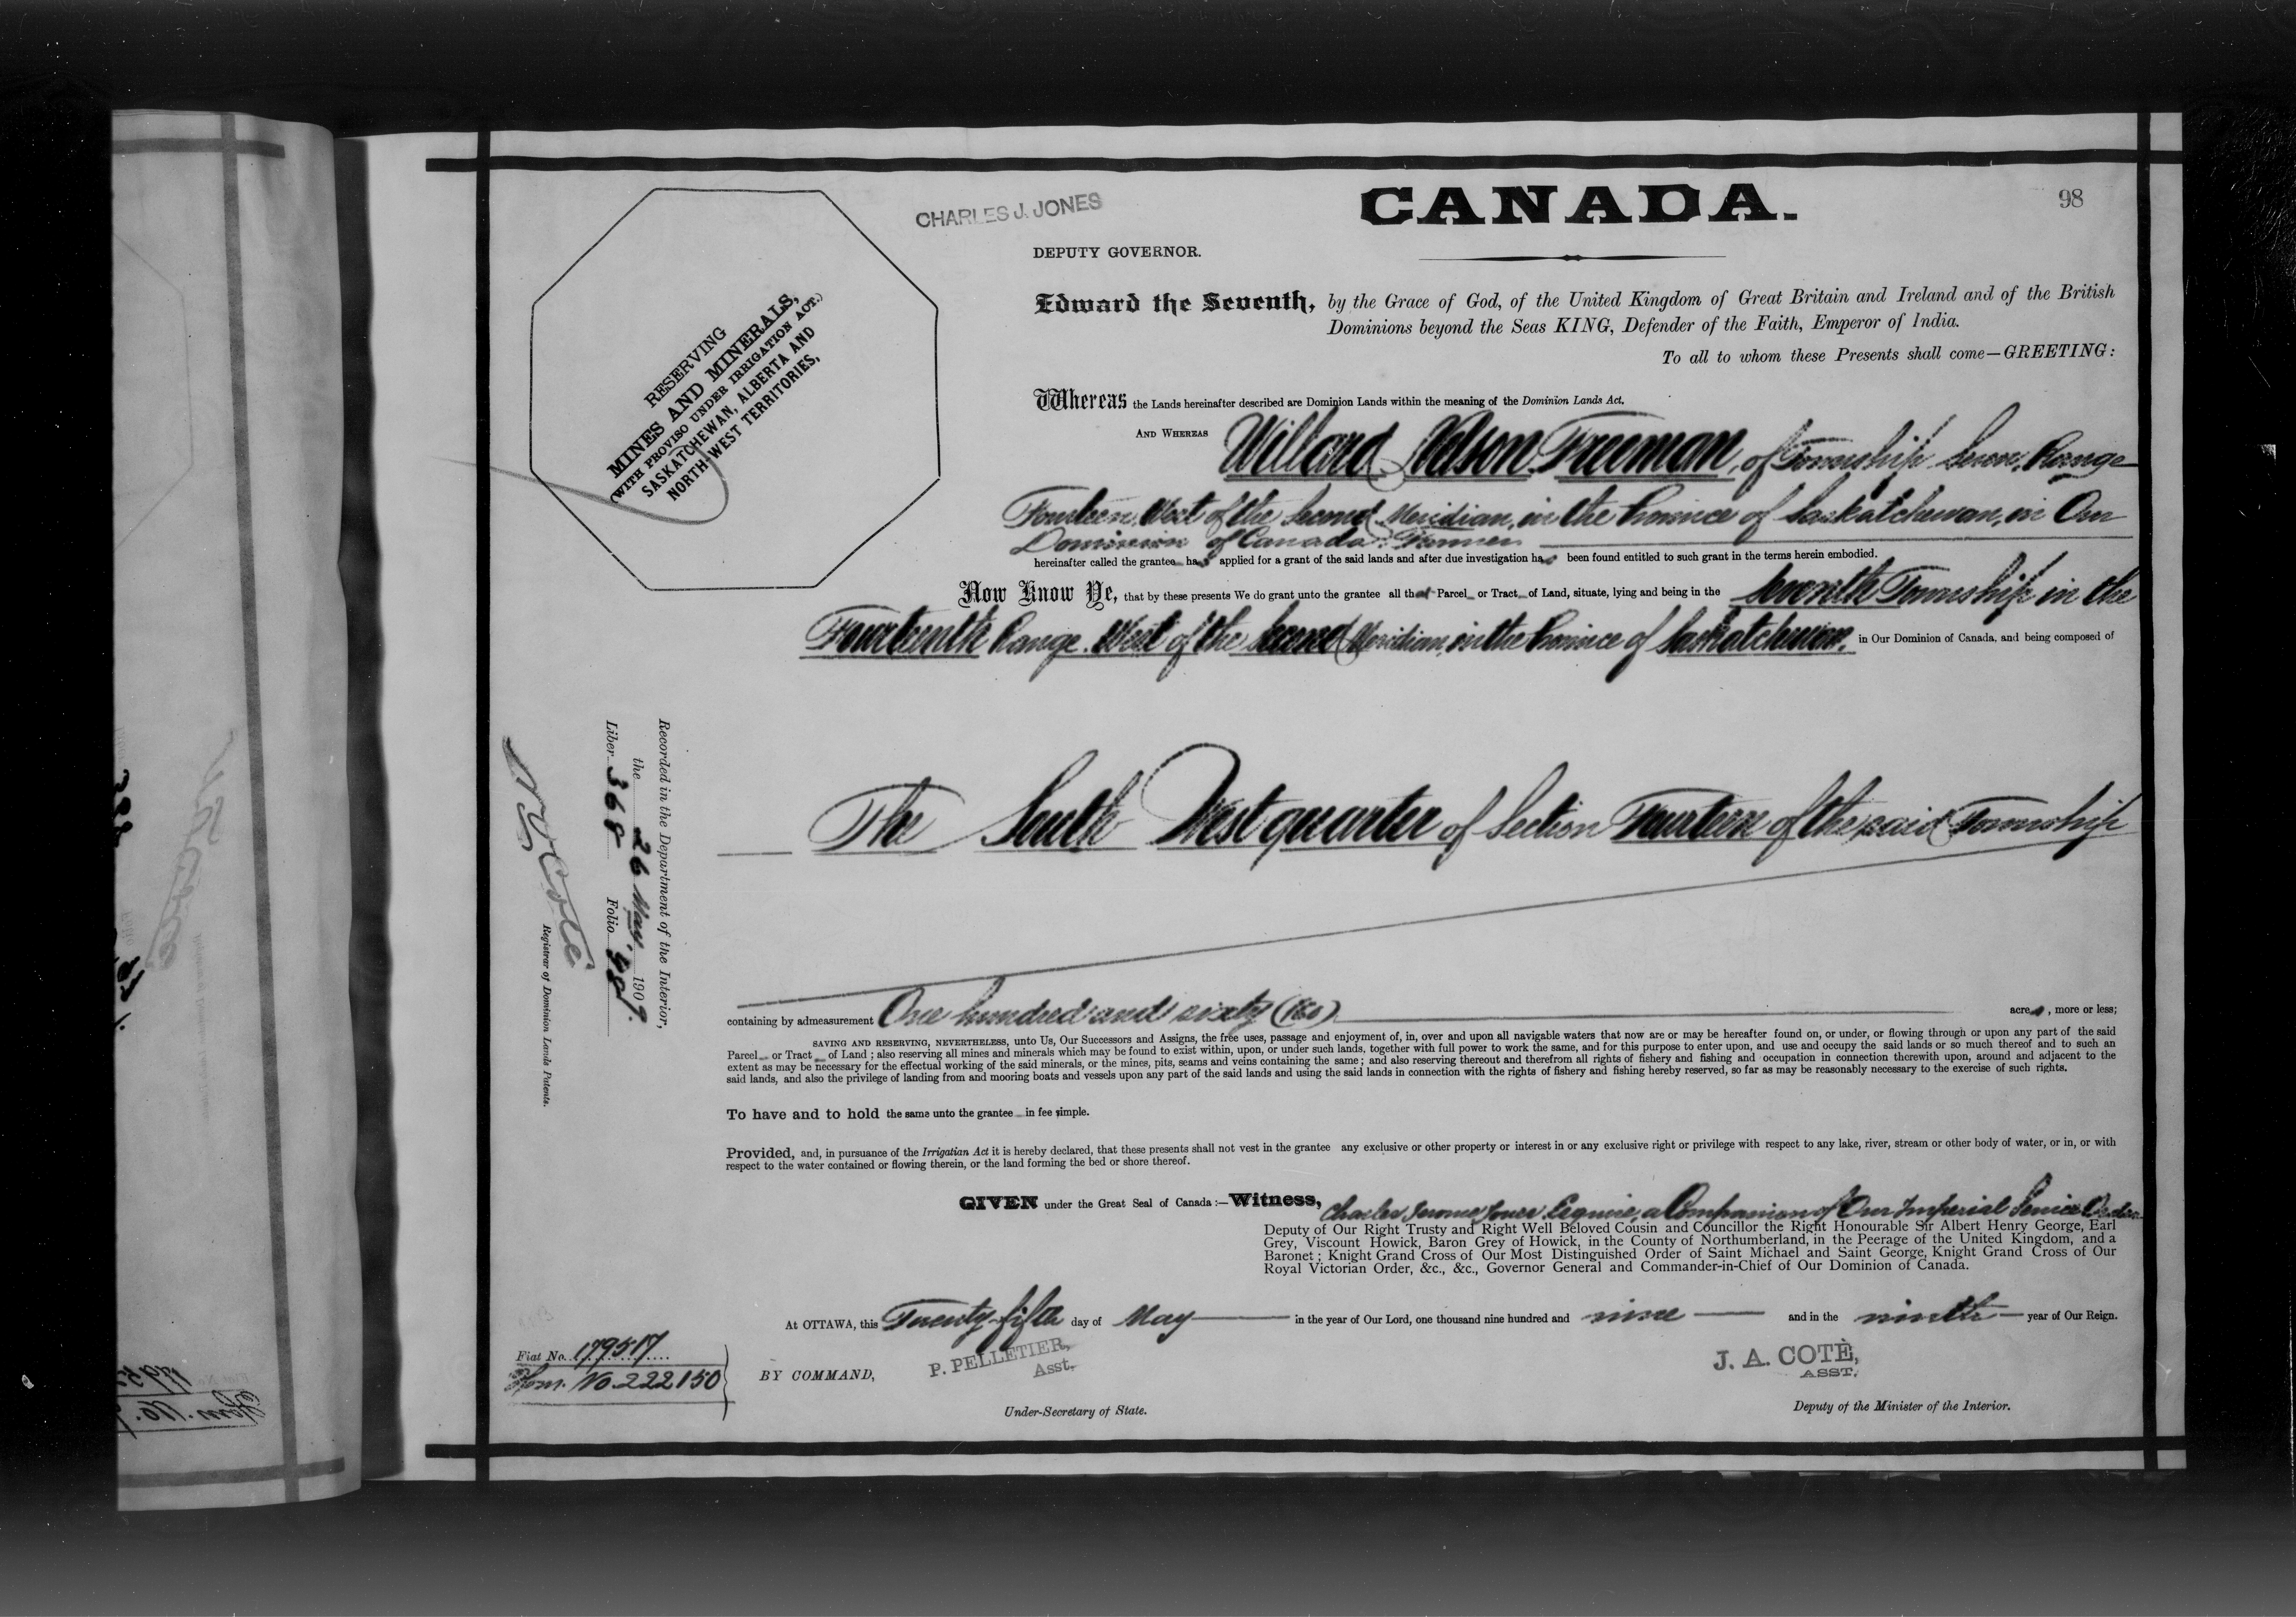 CANADA.
98
CHARLES J. JONES
DEPUTY GOVERNOR.
RESERVING
MINES AND MINERALS,
(WITH PROVISO UNDER IRRIGATION ACT.)
SASKATCHEWAN, ALBERTA AND
NORTH-WEST TERRITORIES,
Edward the Seventh, by the Grace of God, of the United Kingdom of Great Britain and Ireland and of the British
Dominions beyond the Seas KING, Defender of the Faith, Emperor of India.
To all to whom these Presents shall come—GREETING:
Whereas the Lands hereinafter described are Dominion Lands within the meaning of the Dominion Lands Act.
AND WHEREAS Willard Nelson Freeman, of Township Seven, Range
Fourteen, West of the Second Meridian, in the Province of Saskatchewan, in Our
Dominion of Canada, Farmer
hereinafter called the grantee has applied for a grant of the said lands and after due investigation has been found entitled to such grant in the terms herein embodied.
Now Know Ye, that by these presents We do grant unto the grantee all that Parcel or Tract of Land, situate, lying and being in the Seventh Township in the
Fourteenth Range, West of the Second Meridian, in the Province of Saskatchewan, in Our Dominion of Canada, and being composed of
The South West quarter of Section Fourteen of the said Township
containing by admeasurement One hundred and sixty (160) acres, more or less;
SAVING AND RESERVING, NEVERTHELESS, unto Us, Our Successors and Assigns, the free uses, passage and enjoyment of, in, over and upon all navigable waters that now are or may be hereafter found on, or under, or flowing through or upon any part of the said
Parcel or Tract of Land ; also reserving all mines and minerals which may be found to exist within, upon, or under such lands, together with full power to work the same, and for this purpose to enter upon, and use and occupy the said lands or so much thereof and to such an
extent as may be necessary for the effectual working of the said minerals, or the mines, pits, seams and veins containing the same ; and also reserving thereout and therefrom all rights of fishery and fishing and occupation in connection therewith upon, around and adjacent to the
said lands, and also the privilege of landing from and mooring boats and vessels upon any part of the said lands and using the said lands in connection with the rights of fishery and fishing hereby reserved, so far as may be reasonably necessary to the exercise of such rights.
To have and to hold the same unto the grantee in fee simple.
Provided, and, in pursuance of the Irrigation Act it is hereby declared, that these presents shall not vest in the grantee any exclusive or other property or interest in or any exclusive right or privilege with respect to any lake, river, stream or other body of water, or in, or with
respect to the water contained or flowing therein, or the land forming the bed or shore thereof.
GIVEN under the Great Seal of Canada :—Witness, Charles Jerome Jones Esquire, a Companion of Our Imperial Service Order
Deputy of Our Right Trusty and Right Well Beloved Cousin and Councillor the Right Honourable Sir Albert Henry George, Earl
Grey, Viscount Howick, Baron Grey of Howick, in the County of Northumberland, in the Peerage of the United Kingdom, and a
Baronet ; Knight Grand Cross of Our Most Distinguished Order of Saint Michael and Saint George, Knight Grand Cross of Our
Royal Victorian Order, &c., &c., Governor General and Commander-in-Chief of Our Dominion of Canada.
At OTTAWA, this Twenty-fifth day of May in the year of Our Lord, one thousand nine hundred and nine and in the ninth year of Our Reign.
BY COMMAND,
P. PELLETIER,
Asst.
Under-Secretary of State.
J. A. COTÈ,
ASST.
Deputy of the Minister of the Interior.
Fiat No. 179517
Hom. No. 222150
Recorded in the Department of the Interior,
the 26 May, 1909.
Liber 368 Folio 98
N O Coté
Registrar of Dominion Lands Patents.